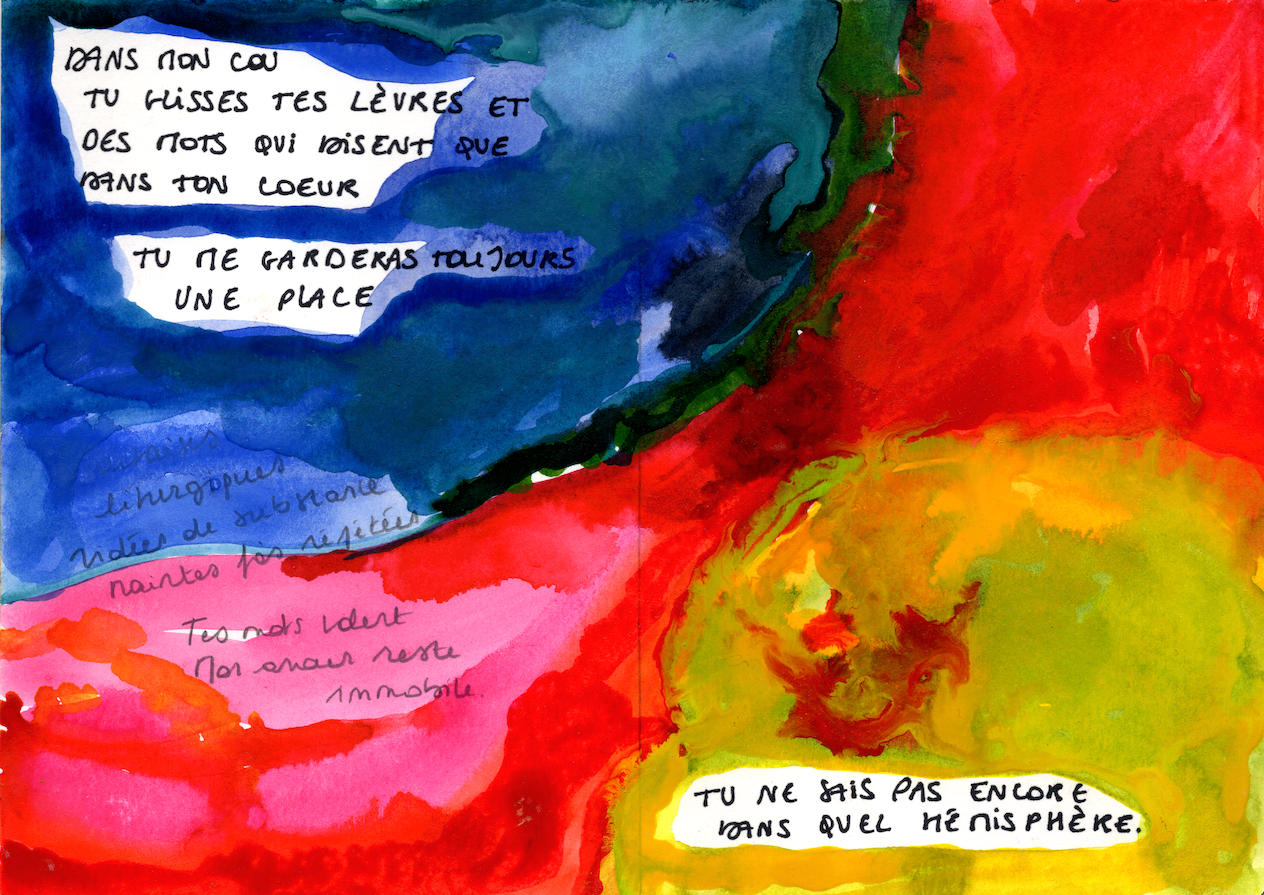 DANS MON COU
TU GLISSES TES LÈVRES ET
DES MOTS QUI DISENT QUE
DANS TON COEUR
TU ME GARDERAS TOUJOURS
UNE PLACE
lithurgiques
vidées de substance
maintes fois répétées
Tes mots volent
Mon amour reste
immobile.
TU NE SAIS PAS ENCORE
DANS QUEL HÉMISPHÈRE.